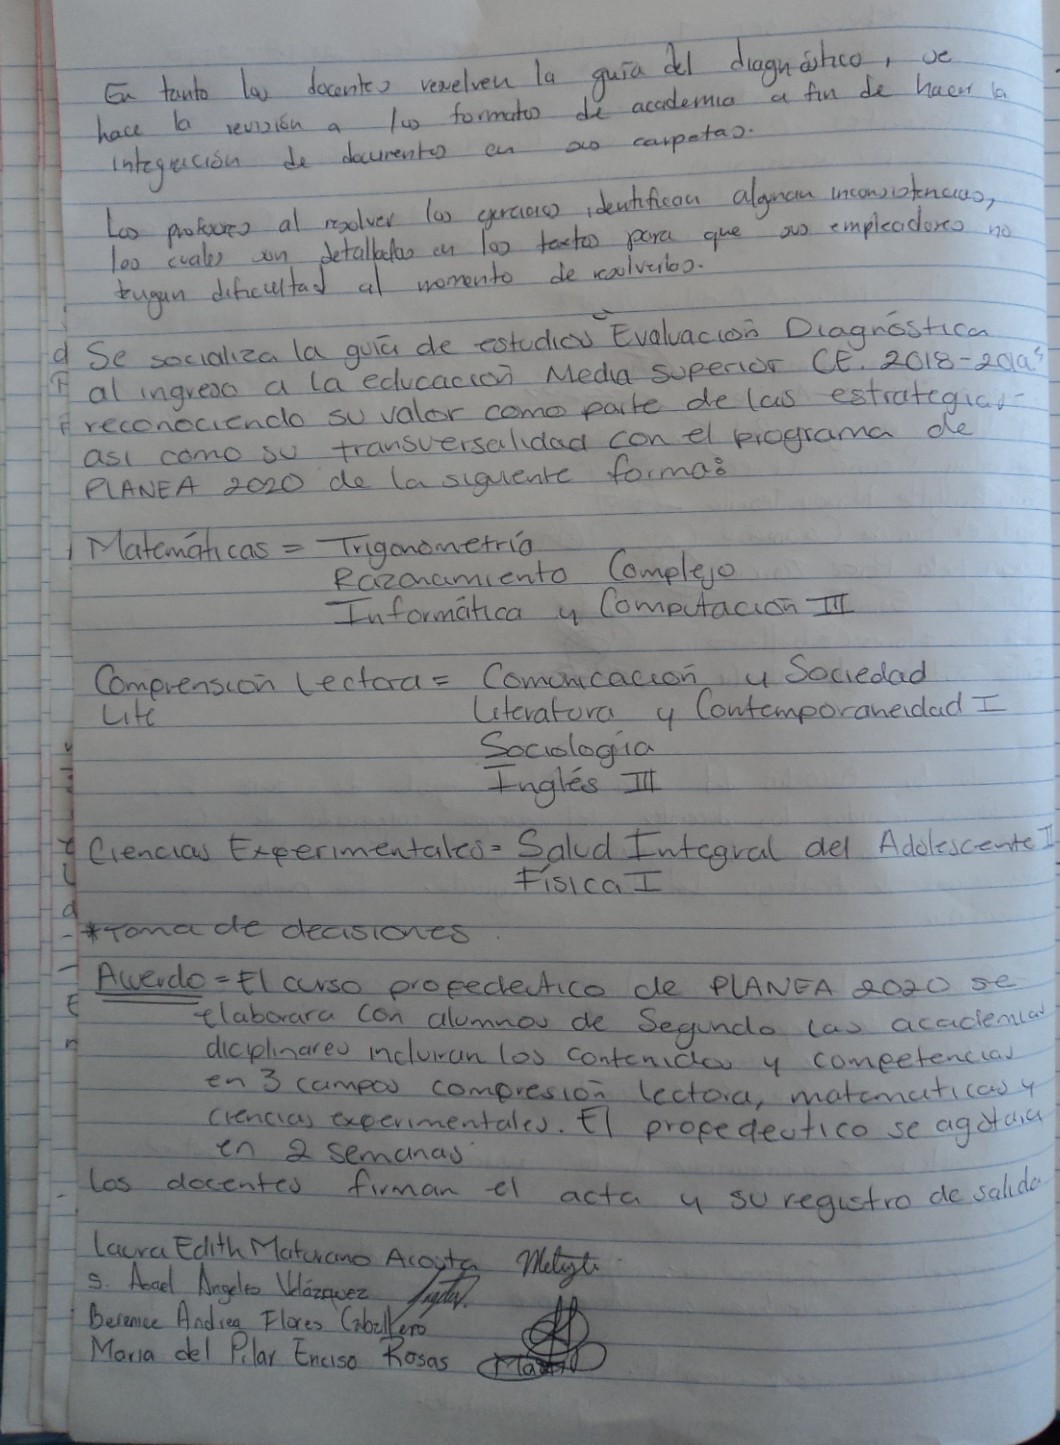 En tanto los docentes resuelven la guía del diagnóstico, se
hace la revisión a los formatos de academia a fin de hacer la
integración de documentos en sus carpetas.
Los profesores al resolver los ejercicios identifican algunas inconsistencias,
los cuales son detallados en los textos para que sus empleadores no
tengan dificultad al momento de resolverlos.
Se socializa la guía de estudios Evaluación Diagnóstica
al ingreso a la educación Media superior CE. 2018-2019
reconociendo su valor como parte de las estrategias
asi como su transversalidad con el programa de
PLANEA 2020 de la siguiente forma:
Matemáticas = Trigonometría
Razonamiento Complejo
Informática y Computación III
Comprensión Lectora = Comunicación y Sociedad
Lite Literatura y Contemporaneidad I
Sociología
Inglés III
Ciencias Experimentales = Salud Integral del Adolescente II
Física I
*Toma de decisiones.
Acuerdo = El curso propedeutico de PLANEA 2020 se
elaborara con alumnos de Segundo las academias
diciplinares incluiran los contenidos y competencias
en 3 campos compresión lectora, matematicas y
ciencias experimentales. El propedeutico se agotara
en 2 semanas
Los docentes firman el acta y su registro de salida
Laura Edith Maturano Acosta
S. Abael Angeles Velázquez
Berenice Andrea Flores Caballero
Maria del Pilar Enciso Rosas